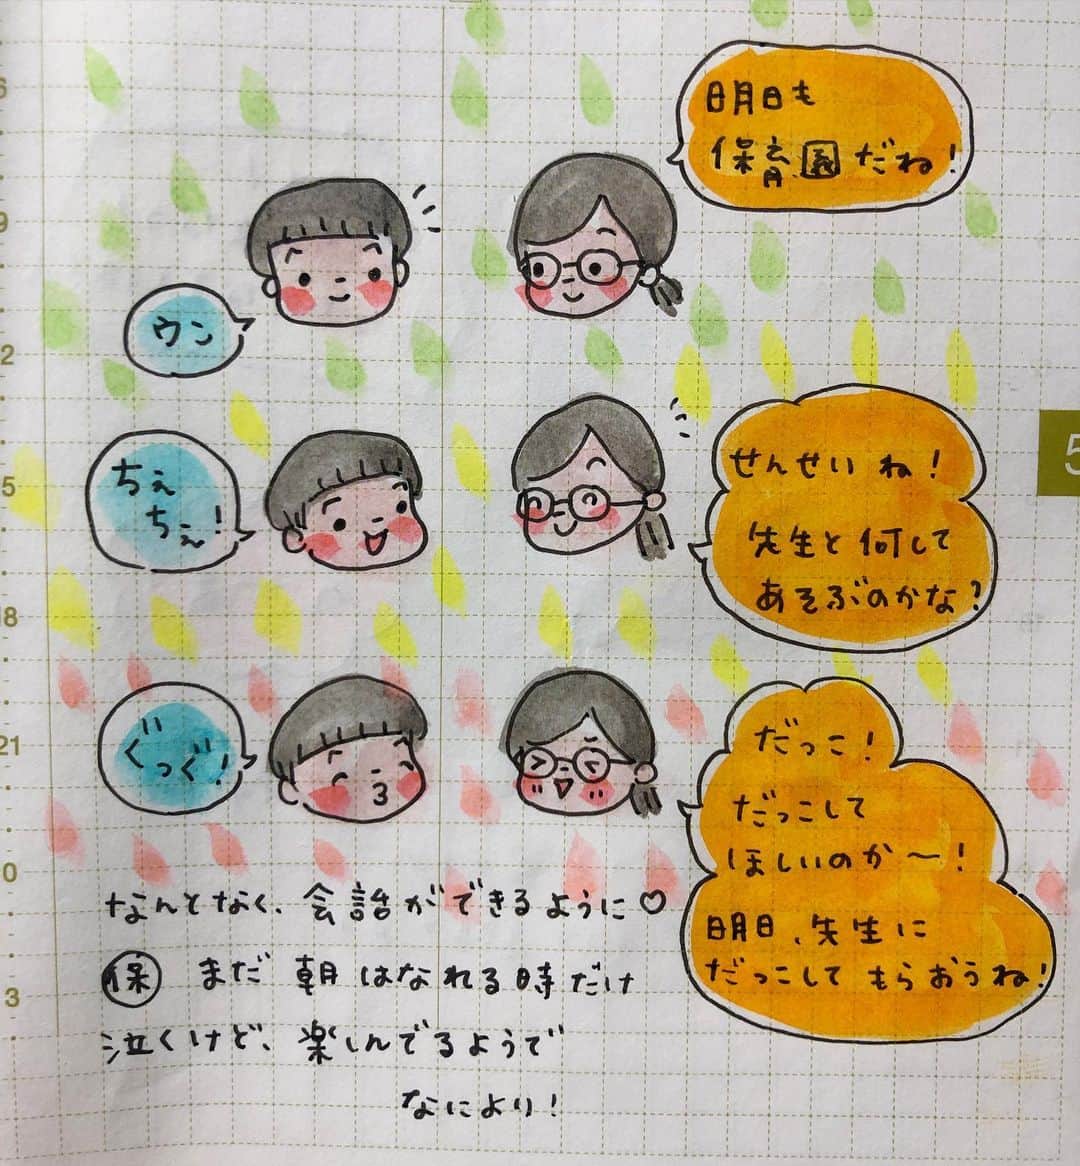 明日も
保育園だね!
ウン
ちぇ
ちぇ!
せんせいね!
先生と何して
あそぶのかな?
ぐっぐ!
だっこ!
だっこして
ほしいのか〜!
明日、先生に
だっこしてもらおうね!
なんとなく、会話ができるように♡
保 まだ朝はなれる時だけ
泣くけど、楽しんでるようで
なにより!
6
9
2
5
18
21
0
3
5